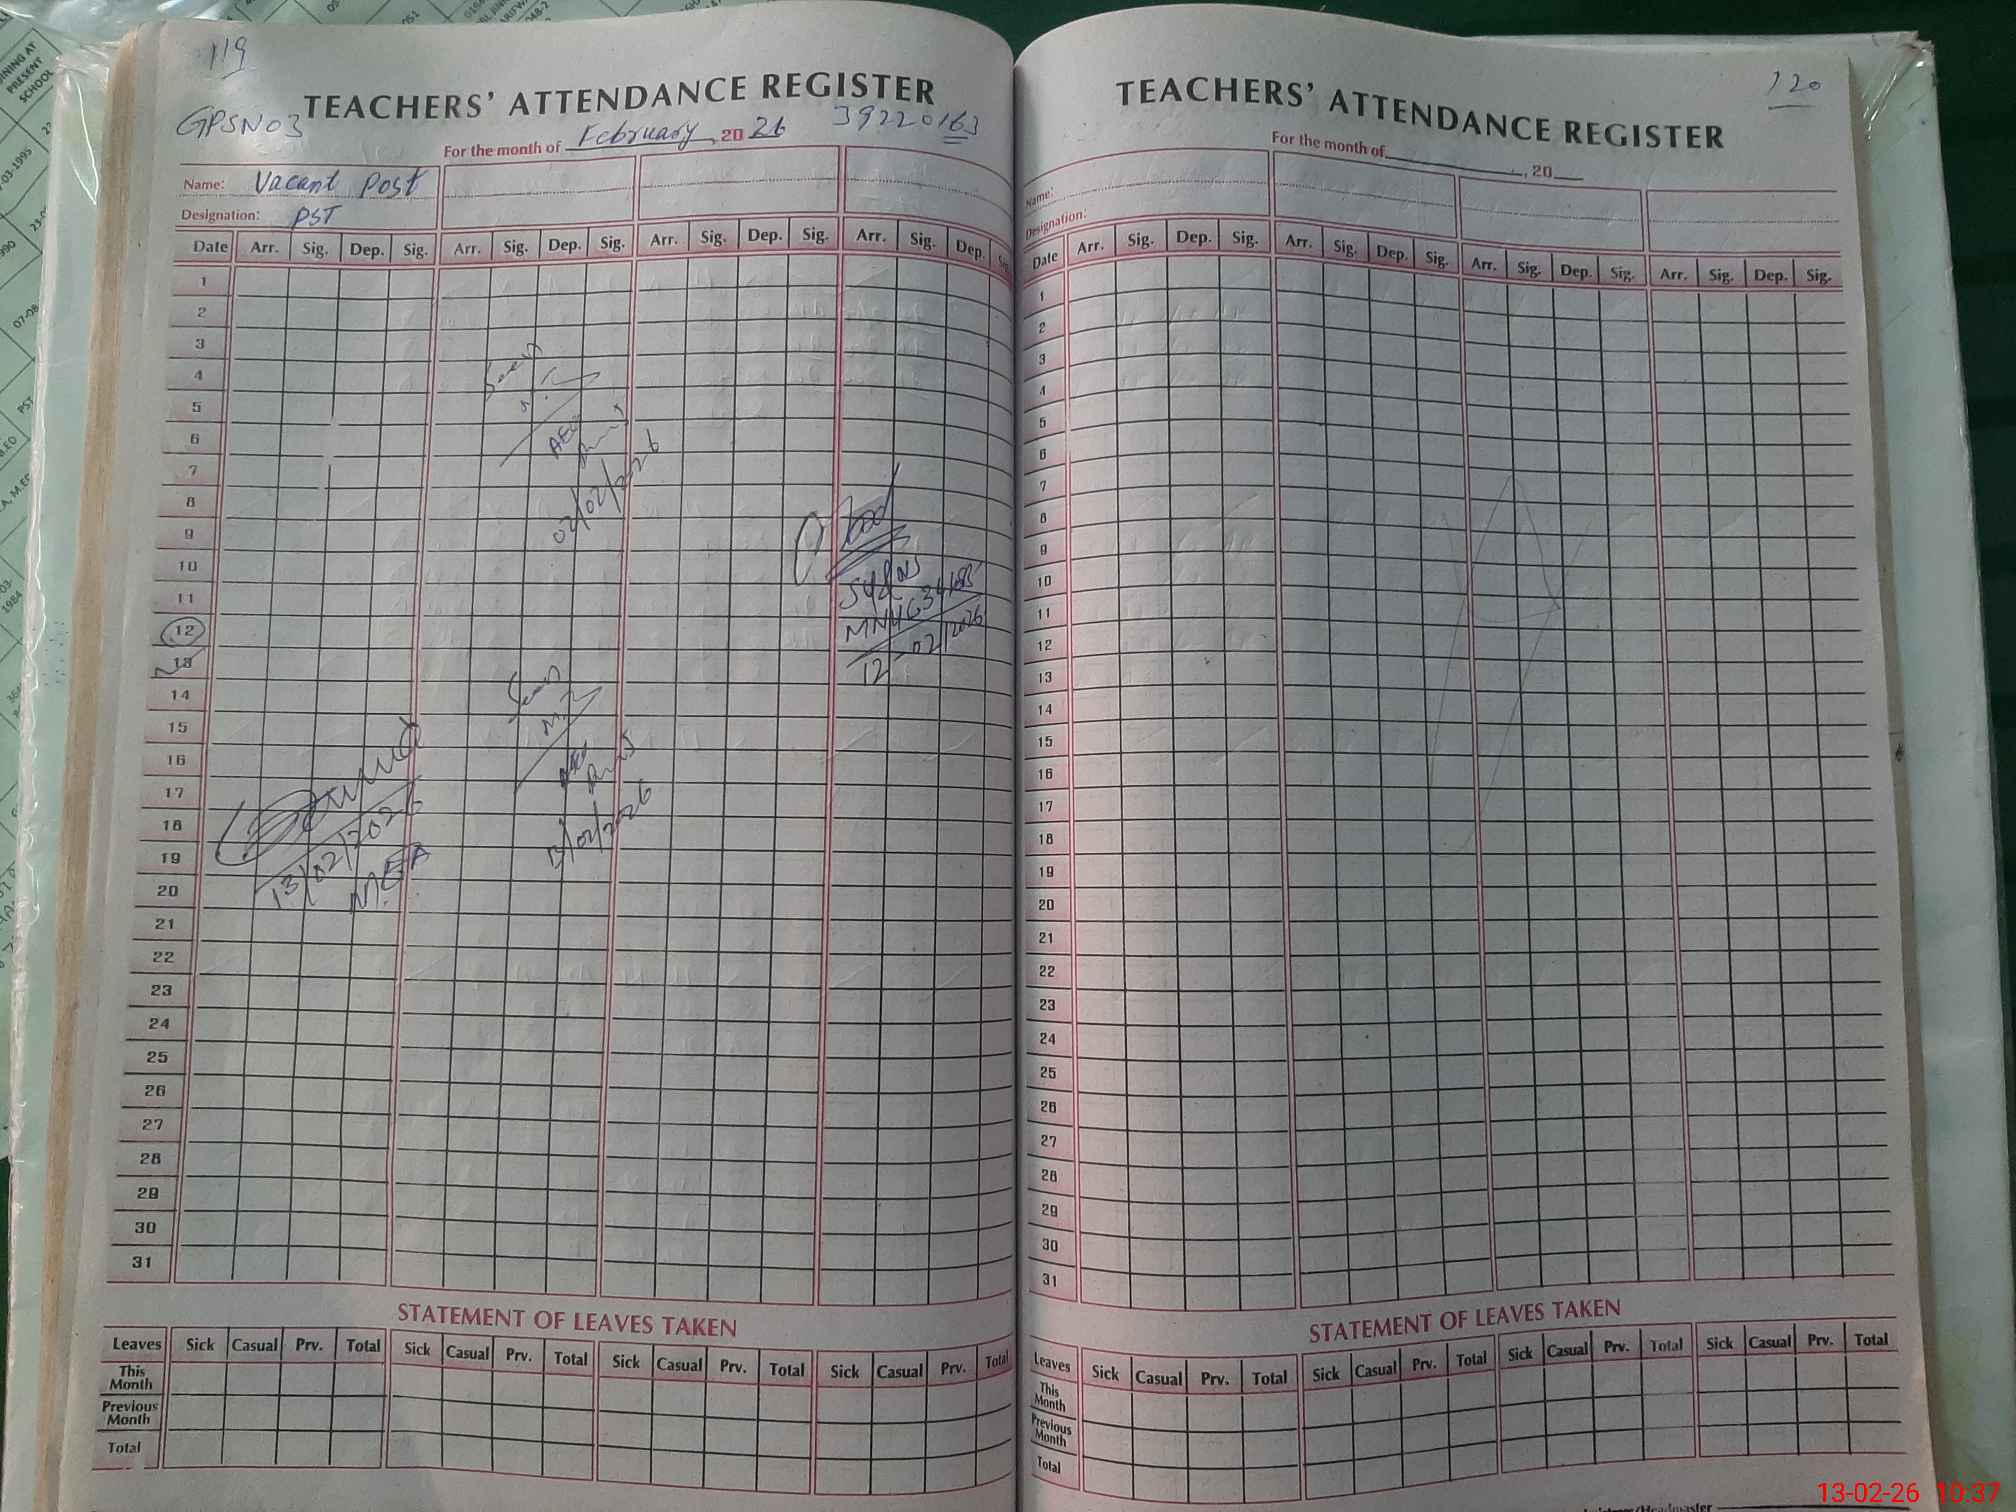 119
TEACHERS' ATTENDANCE REGISTER
GPSNO3
39220163
For the month of February, 2026
Name: Vacant Post
Designation: PST
Date Arr. Sig. Dep. Sig. Arr. Sig. Dep. Sig. Arr. Sig. Dep. Sig. Arr. Sig. Dep. Sig.
1
2
3
4
5
6
7
8
9
10
11
12
13
14
15
16
17
18
19
20
21
22
23
24
25
26
27
28
29
30
31
Seen
AEO
02/02/2026
12-02/2026
Seen
AEO
13/02/2026
13/02/2026
MEA
STATEMENT OF LEAVES TAKEN
Leaves Sick Casual Prv. Total Sick Casual Prv. Total Sick Casual Prv. Total Sick Casual Prv. Total
This Month
Previous Month
Total
120
TEACHERS' ATTENDANCE REGISTER
For the month of , 20
Name:
Designation:
Date Arr. Sig. Dep. Sig. Arr. Sig. Dep. Sig. Arr. Sig. Dep. Sig. Arr. Sig. Dep. Sig.
1
2
3
4
5
6
7
8
9
10
11
12
13
14
15
16
17
18
19
20
21
22
23
24
25
26
27
28
29
30
31
STATEMENT OF LEAVES TAKEN
Leaves Sick Casual Prv. Total Sick Casual Prv. Total Sick Casual Prv. Total Sick Casual Prv. Total
This Month
Previous Month
Total
13-02-26 10:37